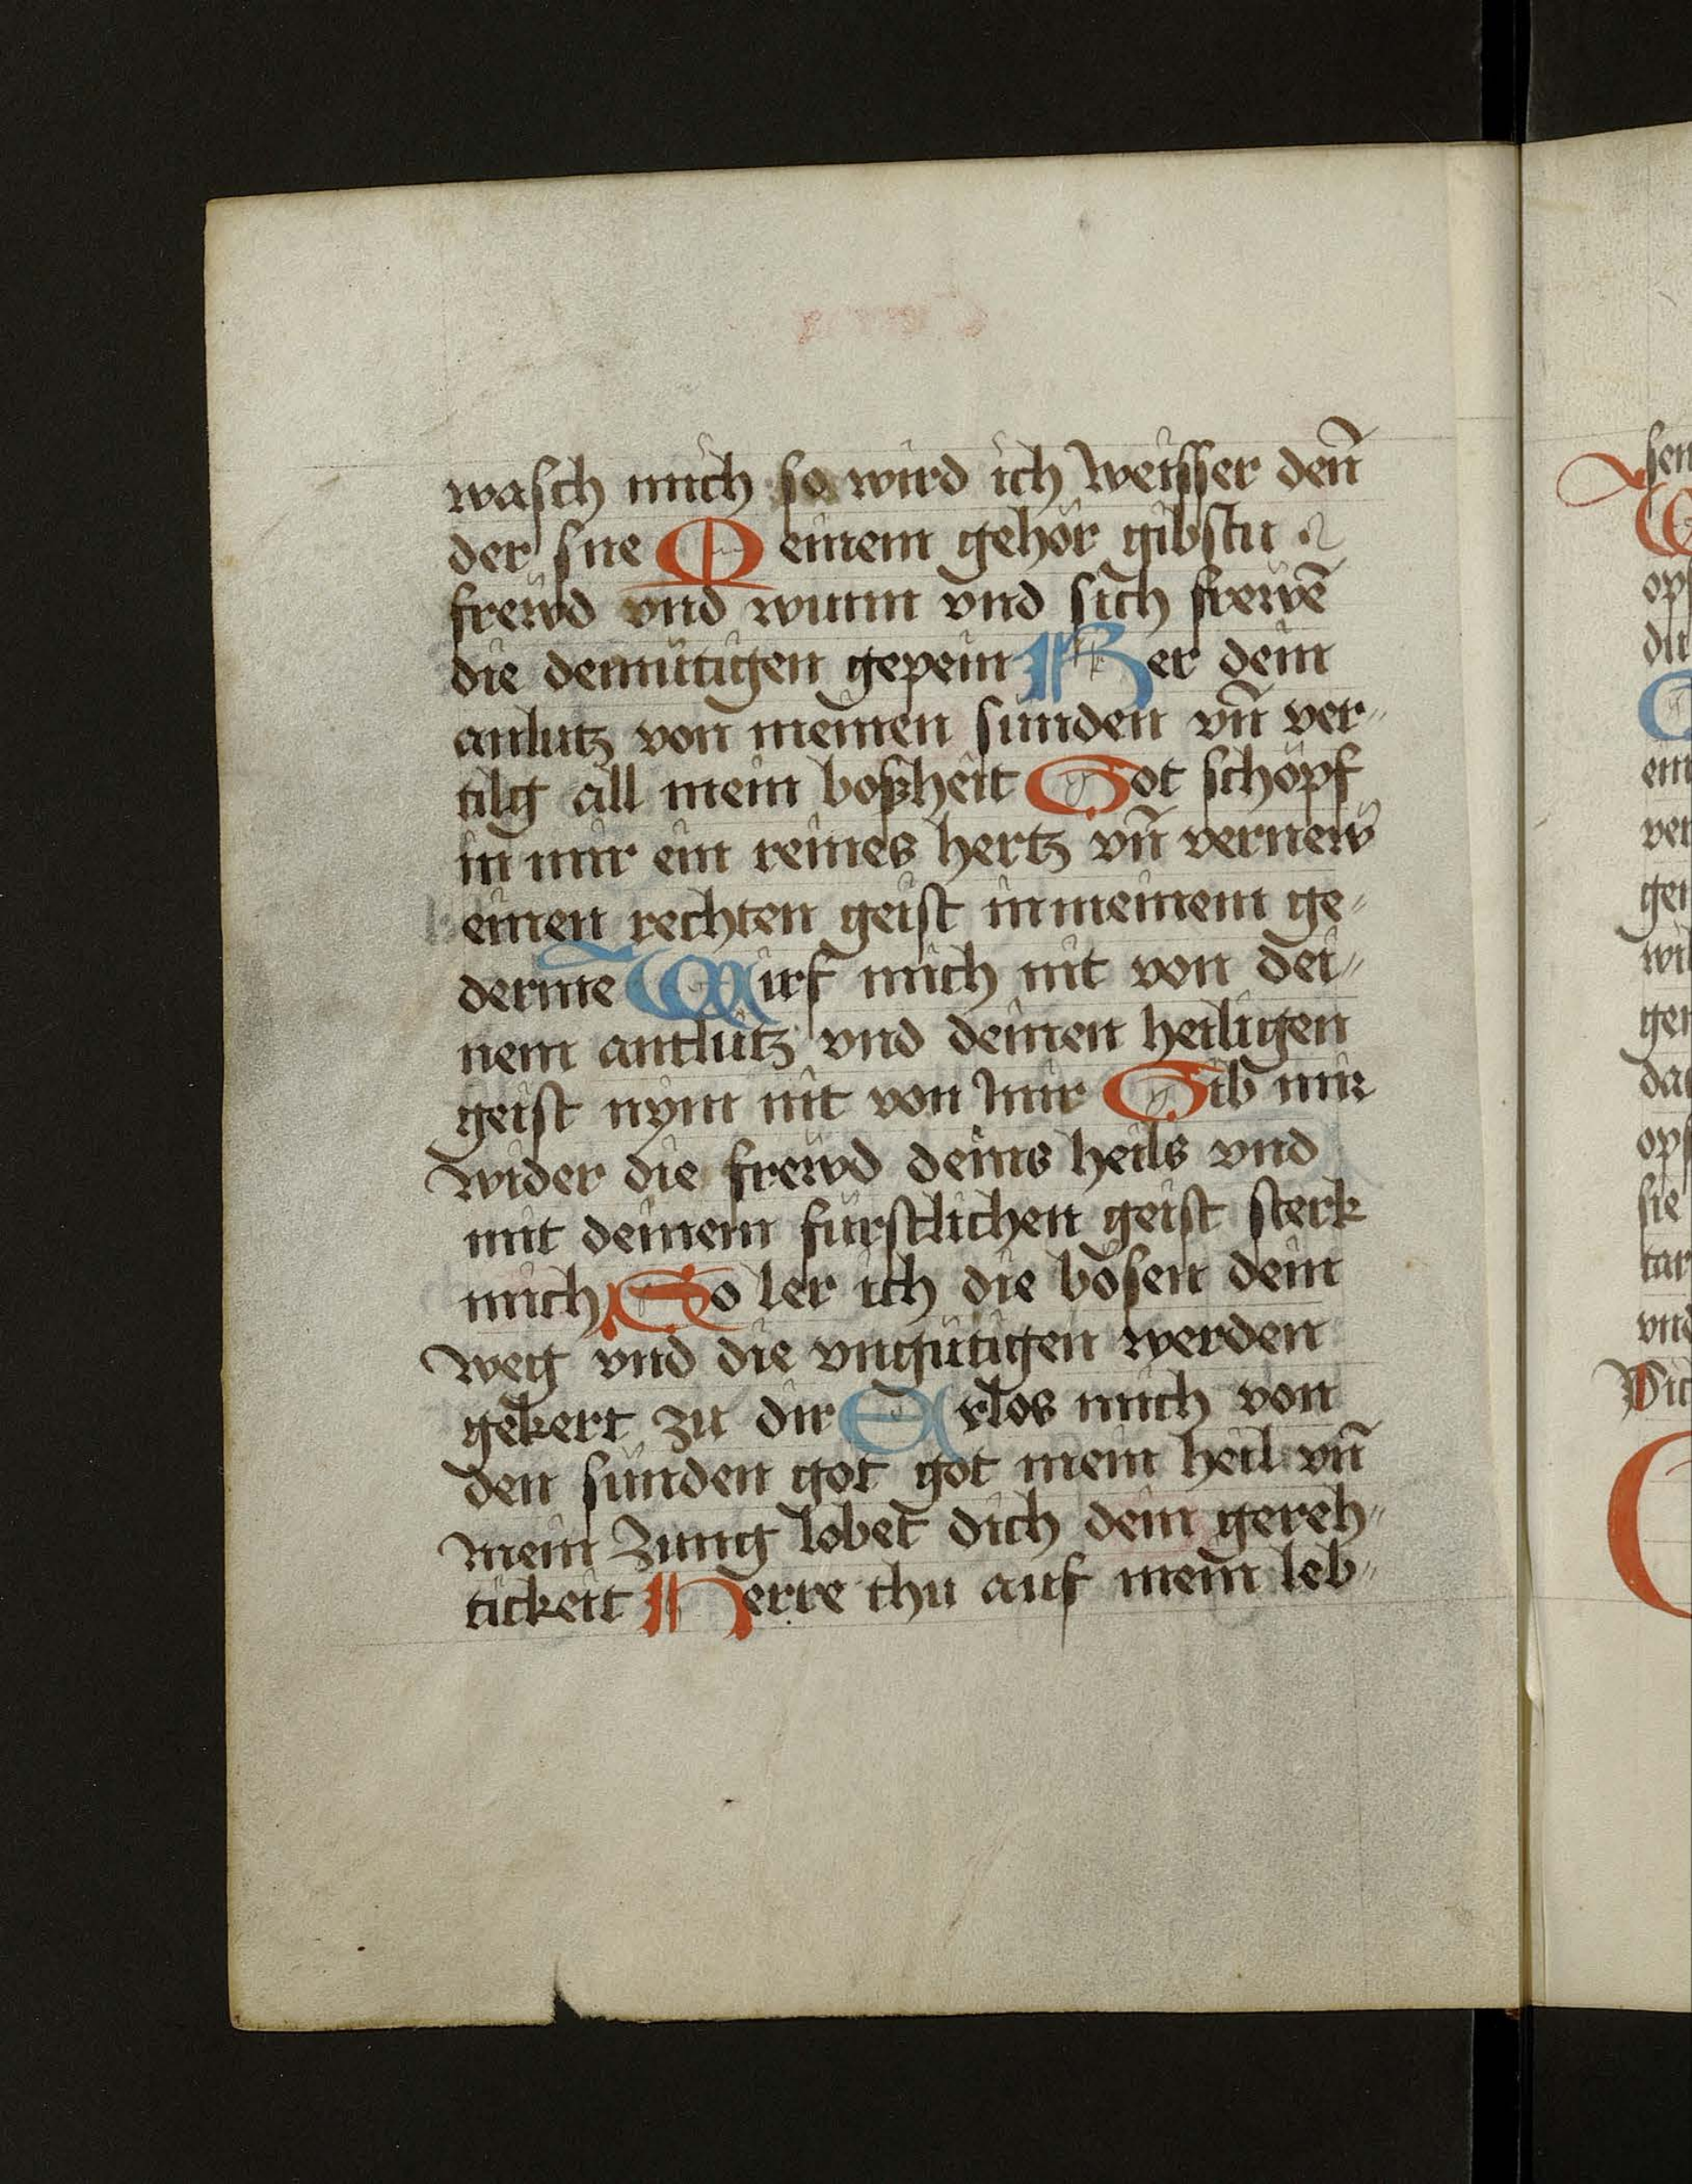 wasch mich so wird ich weisser den̄
der sne Meinem gehör gibstu
frewd vnd wunn vnd sich frewē
die demütigen gepein Ker dein
antlutz von meinen sunden vn̄ ver〃
tilg all mein boßheit Got schöpf
in mir ein reines hertz vn̄ vernew
einen rechten geist in meinem ge〃
derme Wirf mich nit von dei〃
nem antlutz vnd deinen heiligen
geist nym nit von mir Gib mir
wider die frewd deins heils vnd
mit deinem fürstlichen geist sterk
mich So ler ich die bösen dein
weg vnd die vngütigen werden
gekert zu dir Erlos mich von
den sünden got got mein heil vn̄
mein zung lobet dich dein gereh〃
tickeit Herre thu auf mein leb〃